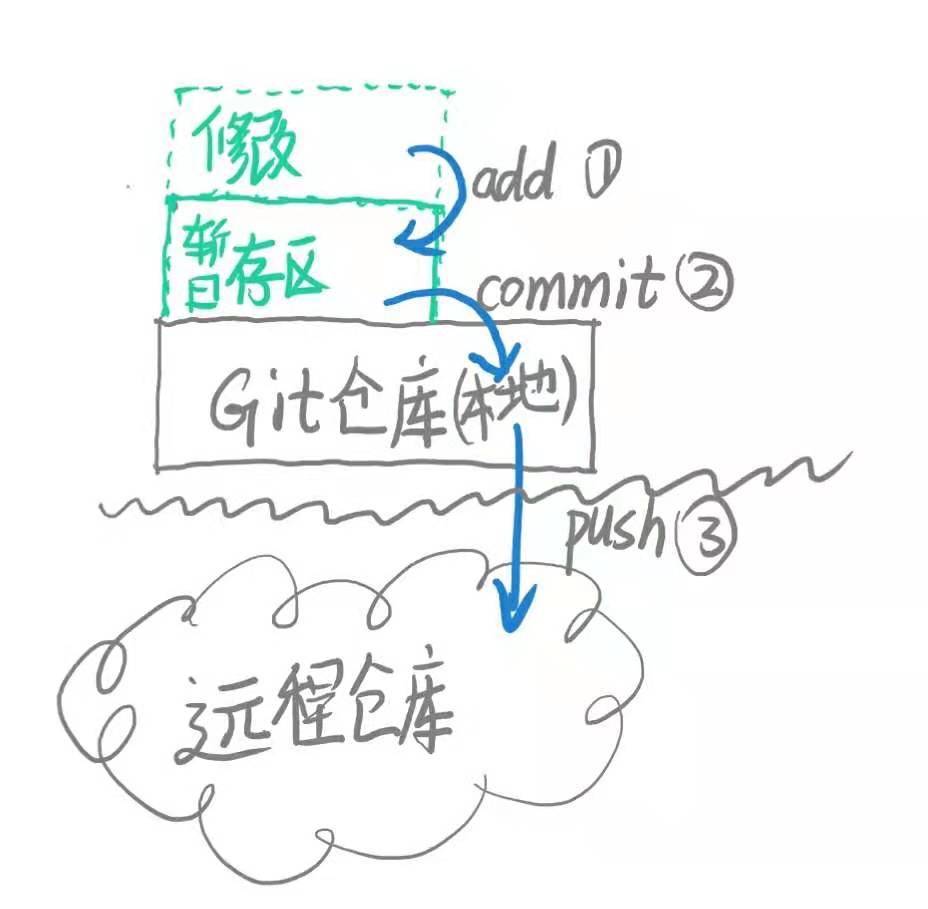 修改
add ①
暂存区
commit ②
Git仓库(本地)
push ③
远程仓库